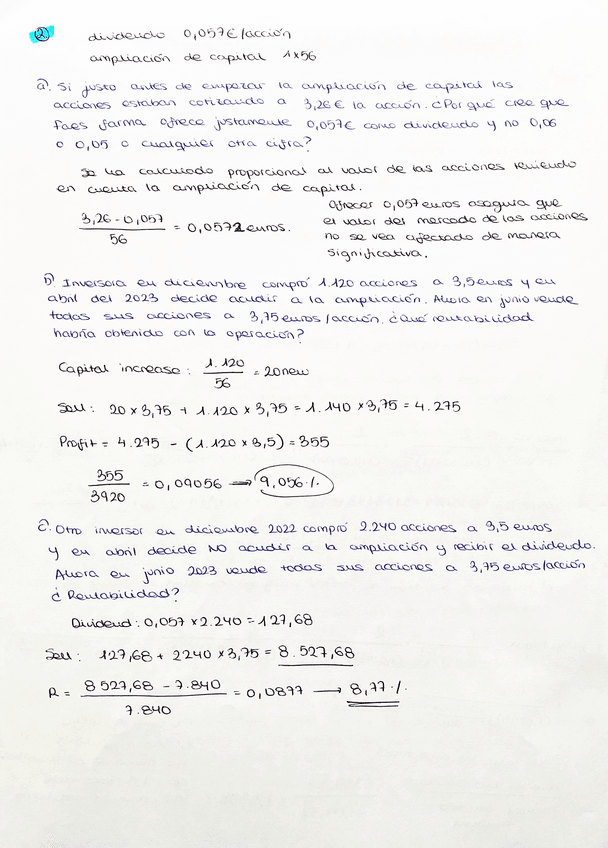 2. dividendo 0,057€/acción
ampliación de capital 1x56
a). Si justo antes de empezar la ampliación de capital las
acciones estaban cotizando a 3,26€ la acción. ¿Por qué cree que
Faes farma ofrece justamente 0,057€ como dividendo y no 0,06
o 0,05 o cualquier otra cifra?
Se ha calculado proporcional al valor de las acciones teniendo
en cuenta la ampliación de capital.
3,26 - 0,057 / 56 = 0,0572 euros.
Ofrecer 0,057 euros asegura que
el valor del mercado de las acciones
no se vea afectado de manera
significativa.
b) Inversora en diciembre compró 1.120 acciones a 3,5 euros y en
abril del 2023 decide acudir a la ampliación. Ahora en junio vende
todas sus acciones a 3,75 euros/acción. ¿Qué rentabilidad
habría obtenido con la operación?
Capital increase: 1.120 / 56 = 20 new
Sell: 20 x 3,75 + 1.120 x 3,75 = 1.140 x 3,75 = 4.275
Profit = 4.275 - (1.120 x 3,5) = 355
355 / 3920 = 0,09056 → 9,056%
c. Otro inversor en diciembre 2022 compró 2.240 acciones a 3,5 euros
y en abril decide NO acudir a la ampliación y recibir el dividendo.
Ahora en junio 2023 vende todas sus acciones a 3,75 euros/acción
¿Rentabilidad?
Dividend: 0,057 x 2.240 = 127,68
Sell: 127,68 + 2240 x 3,75 = 8.527,68
R = 8527,68 - 7.840 / 7.840 = 0,0877 → 8,77%